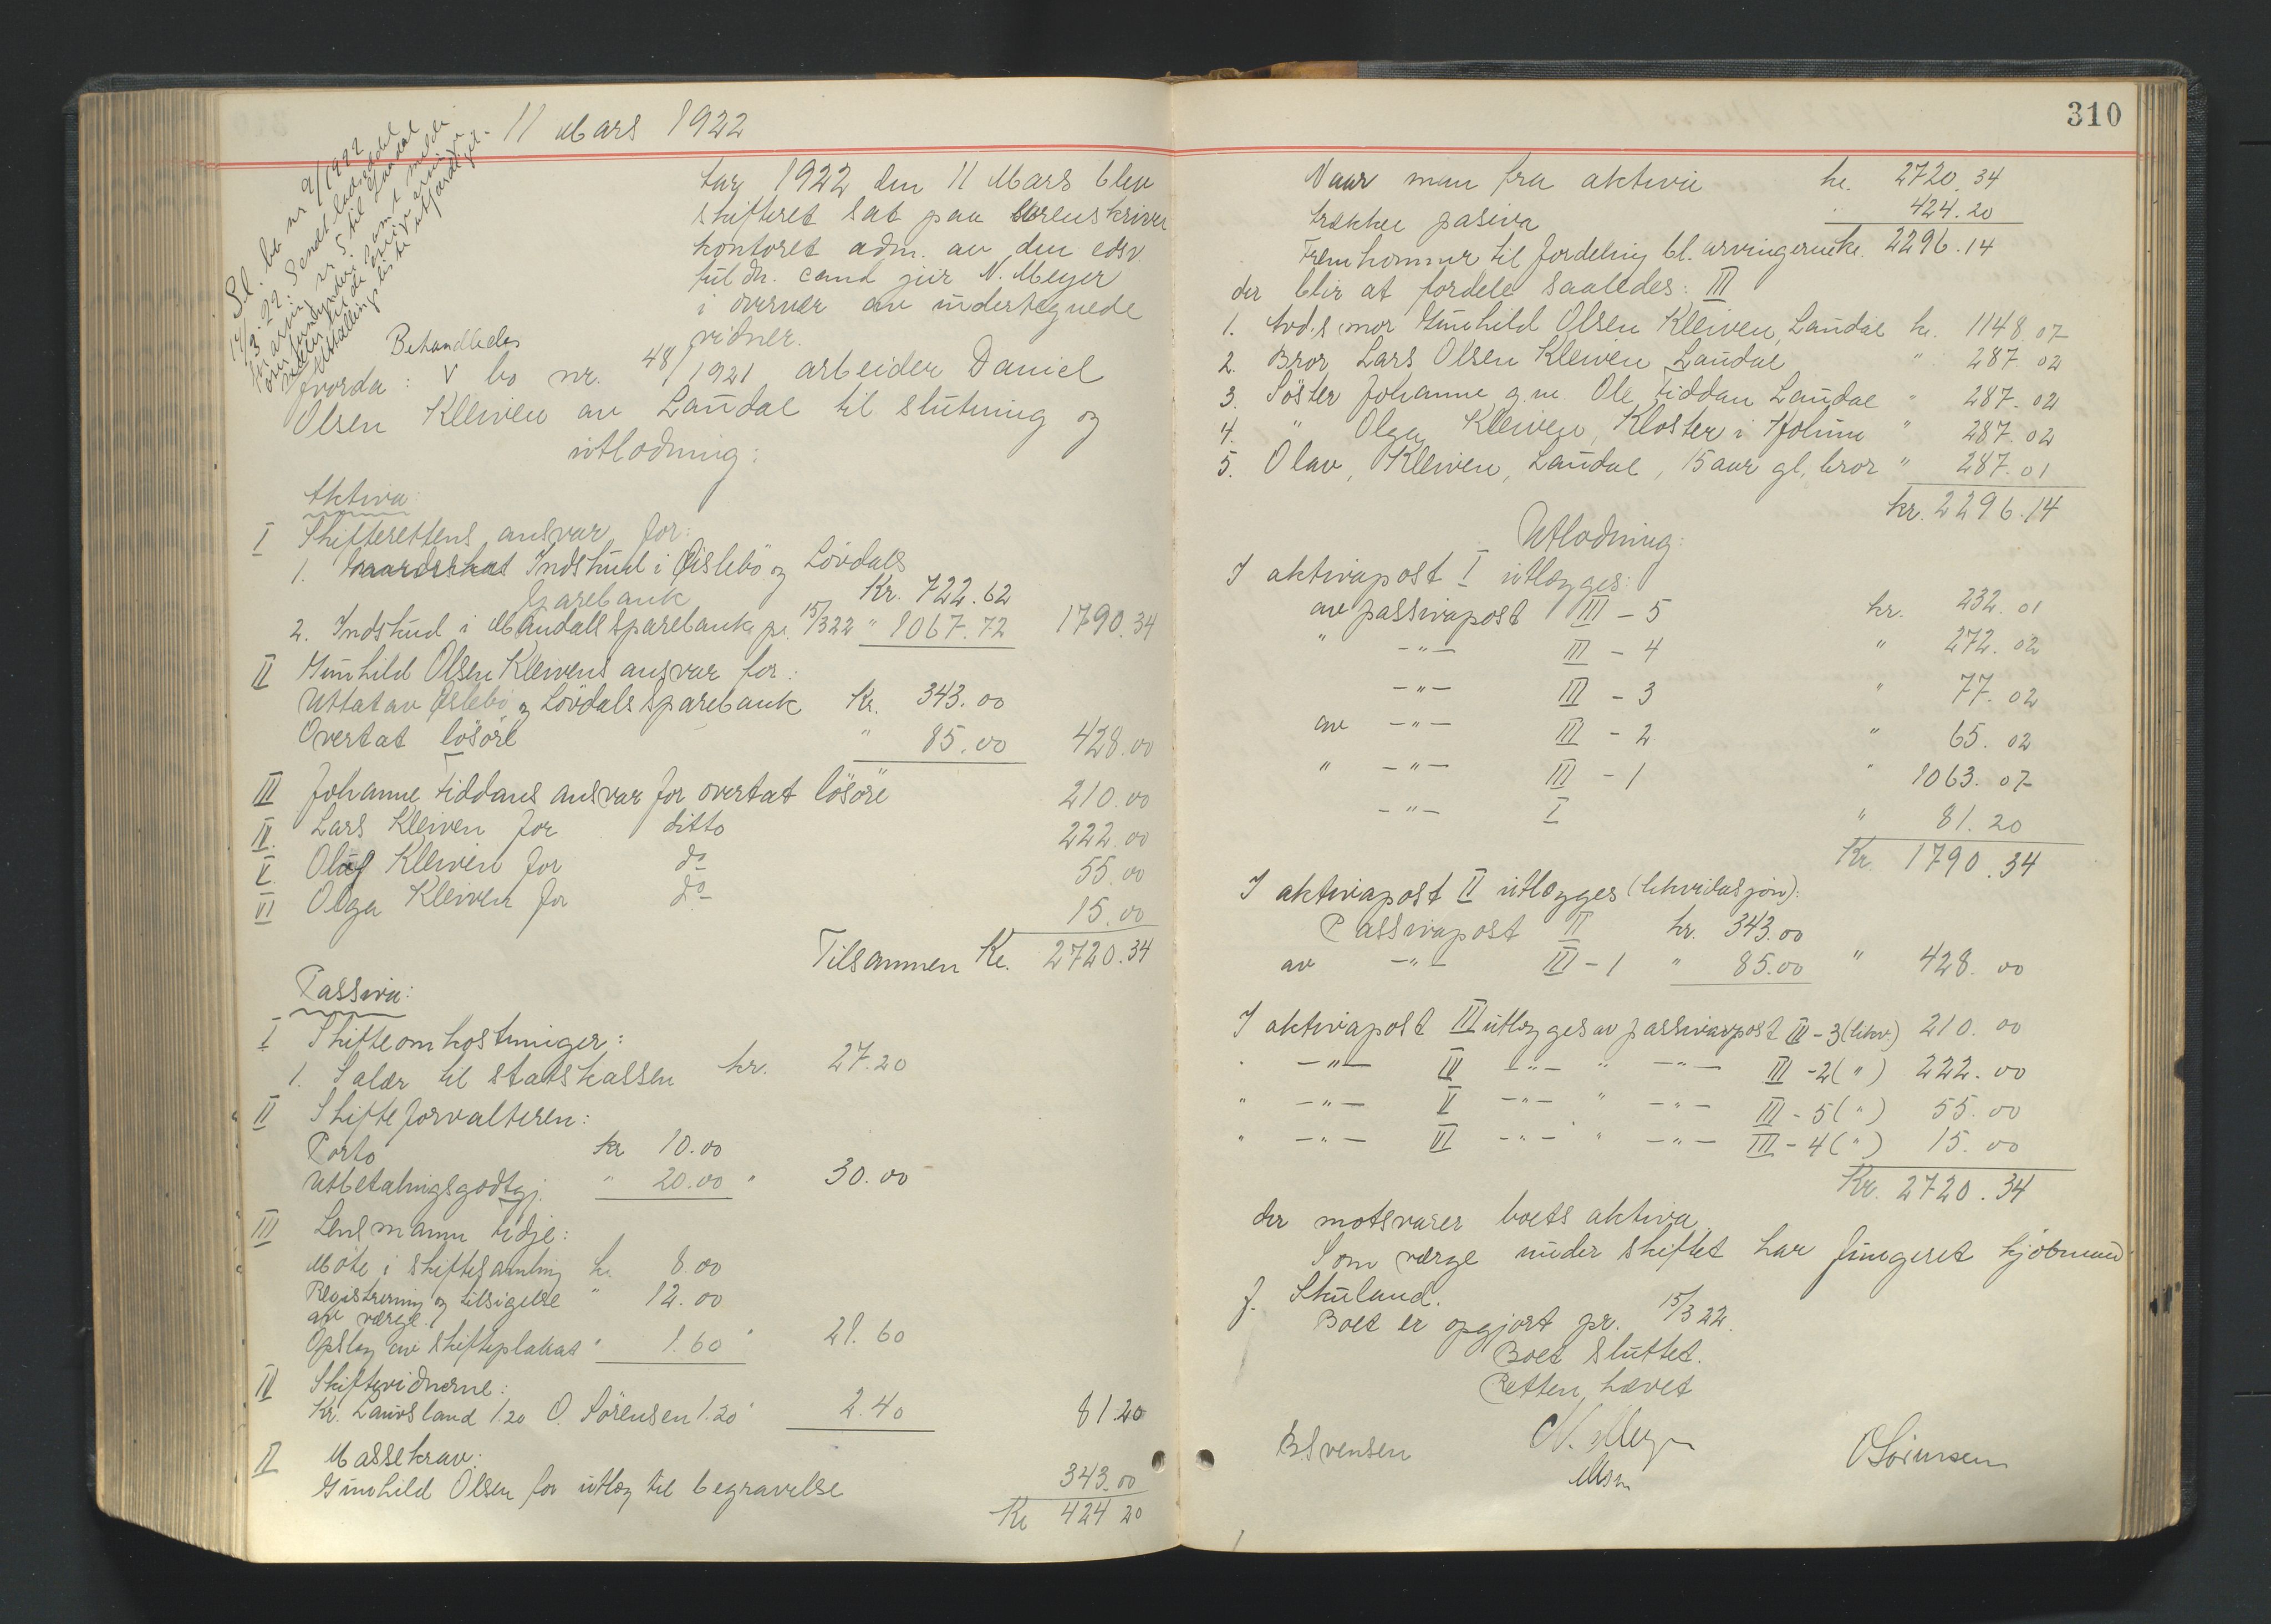 11 Mars 1922
Sl. bo nr 9/1922
14/3.22. Sendt
Aar 1922 den 11 Mars blev
skifteret sat paa sorenskriver
kontoret adm. av den edsv.
fuldm. cand jur N. Meyer
i overvær av undertegnede
vidner.
Behandledes
Hvorda: V bo nr. 48/1921 arbeider Daniel
Olsen Kleiven av Laudal til slutning og
utlodning:
Aktiva:
I Skifterettens ansvar for:
1. Indskud i Øislebö og Lövdals
Sparebank Kr. 722.62
2. Indskud i Mandals Sparebank pr. 15/322 " 1067.72 1790.34
II Gunhild Olsen Kleivens ansvar for:
Uttat av Öslebö og Lövdals Sparebank Kr. 343.00
Overtat lösöre " 85.00 428.00
III Johanne Fiddans ansvar for overtat lösöre 210.00
IV. Lars Kleiven for ditto 222.00
V. Oluf Kleiven for do 55.00
VI Olga Kleiven for do 15.00
Tilsammen Kr. 2720.34
Passiva:
I Skifteomkostninger:
1. Salær til statskassen kr. 27.20
II Skifteforvalteren:
Porto kr 10.00
Utbetalingsgodtgj. " 20.00 " 30.00
III Lensmann Fidje:
Möte i skiftesamling kr. 8.00
Registrering og tilsigelse " 12.00
av værge
Opslag av skifteplakat " 1.60 " 21.60
IV Skiftevidnerne:
Kr. Lauvsland 1.20 O. Sörensen 1.20 " 2.40 81.20
II Massekrav:
Gunhild Olsen for utlæg til begravelse 343.00
Kr 424 20
310
Naar man fra aktiva kr. 2720.34
trækker pasiva 424.20
Fremkommer til fordeling bl. arvingerne kr. 2296.14
der blir at fordele saaledes: III
1. Avd.s mor Gunhild Olsen Kleiven, Laudal kr. 1148.07
2. Bror Lars Olsen Kleiven Laudal " 287.02
3. Söster Johanne g.m. Ole Fiddan Laudal " 287.02
4. " Olga Kleiven, Kloster i Holum " 287.02
5. Olav, Kleiven, Laudal, 15 aar gl. bror " 287.01
kr. 2296.14
Utlodning:
I aktivapost I utlægges:
av passivapost III - 5 kr. 232.01
" -"- III - 4 " 272.02
-"- III - 3 " 77.02
av -"- III - 2 " 65.02
" -"- III - 1 " 1063.07
-"- I " 81.20
Kr. 1790.34
I aktivapost II utlægges (likvidasjon):
Passivapost II kr. 343.00
av -"- III - 1 " 85.00 " 428.00
I aktivapost III utlægges av passivapost III - 3 (likv.) 210.00
" -"- IV -"- " -"- III - 2 (") 222.00
" -"- V -"- " -"- III - 5 (") 55.00
" -"- VI -"- " -"- III - 4 (") 15.00
Kr. 2720.34
der motsvarer boets aktiva
Som værge under skiftet har fungeret kjöbmand
J. Skuland.
Boet er opgjort pr. 15/3 22.
Boet sluttet.
Retten hævet
N. Meyer
B. Svensen O Sörensen